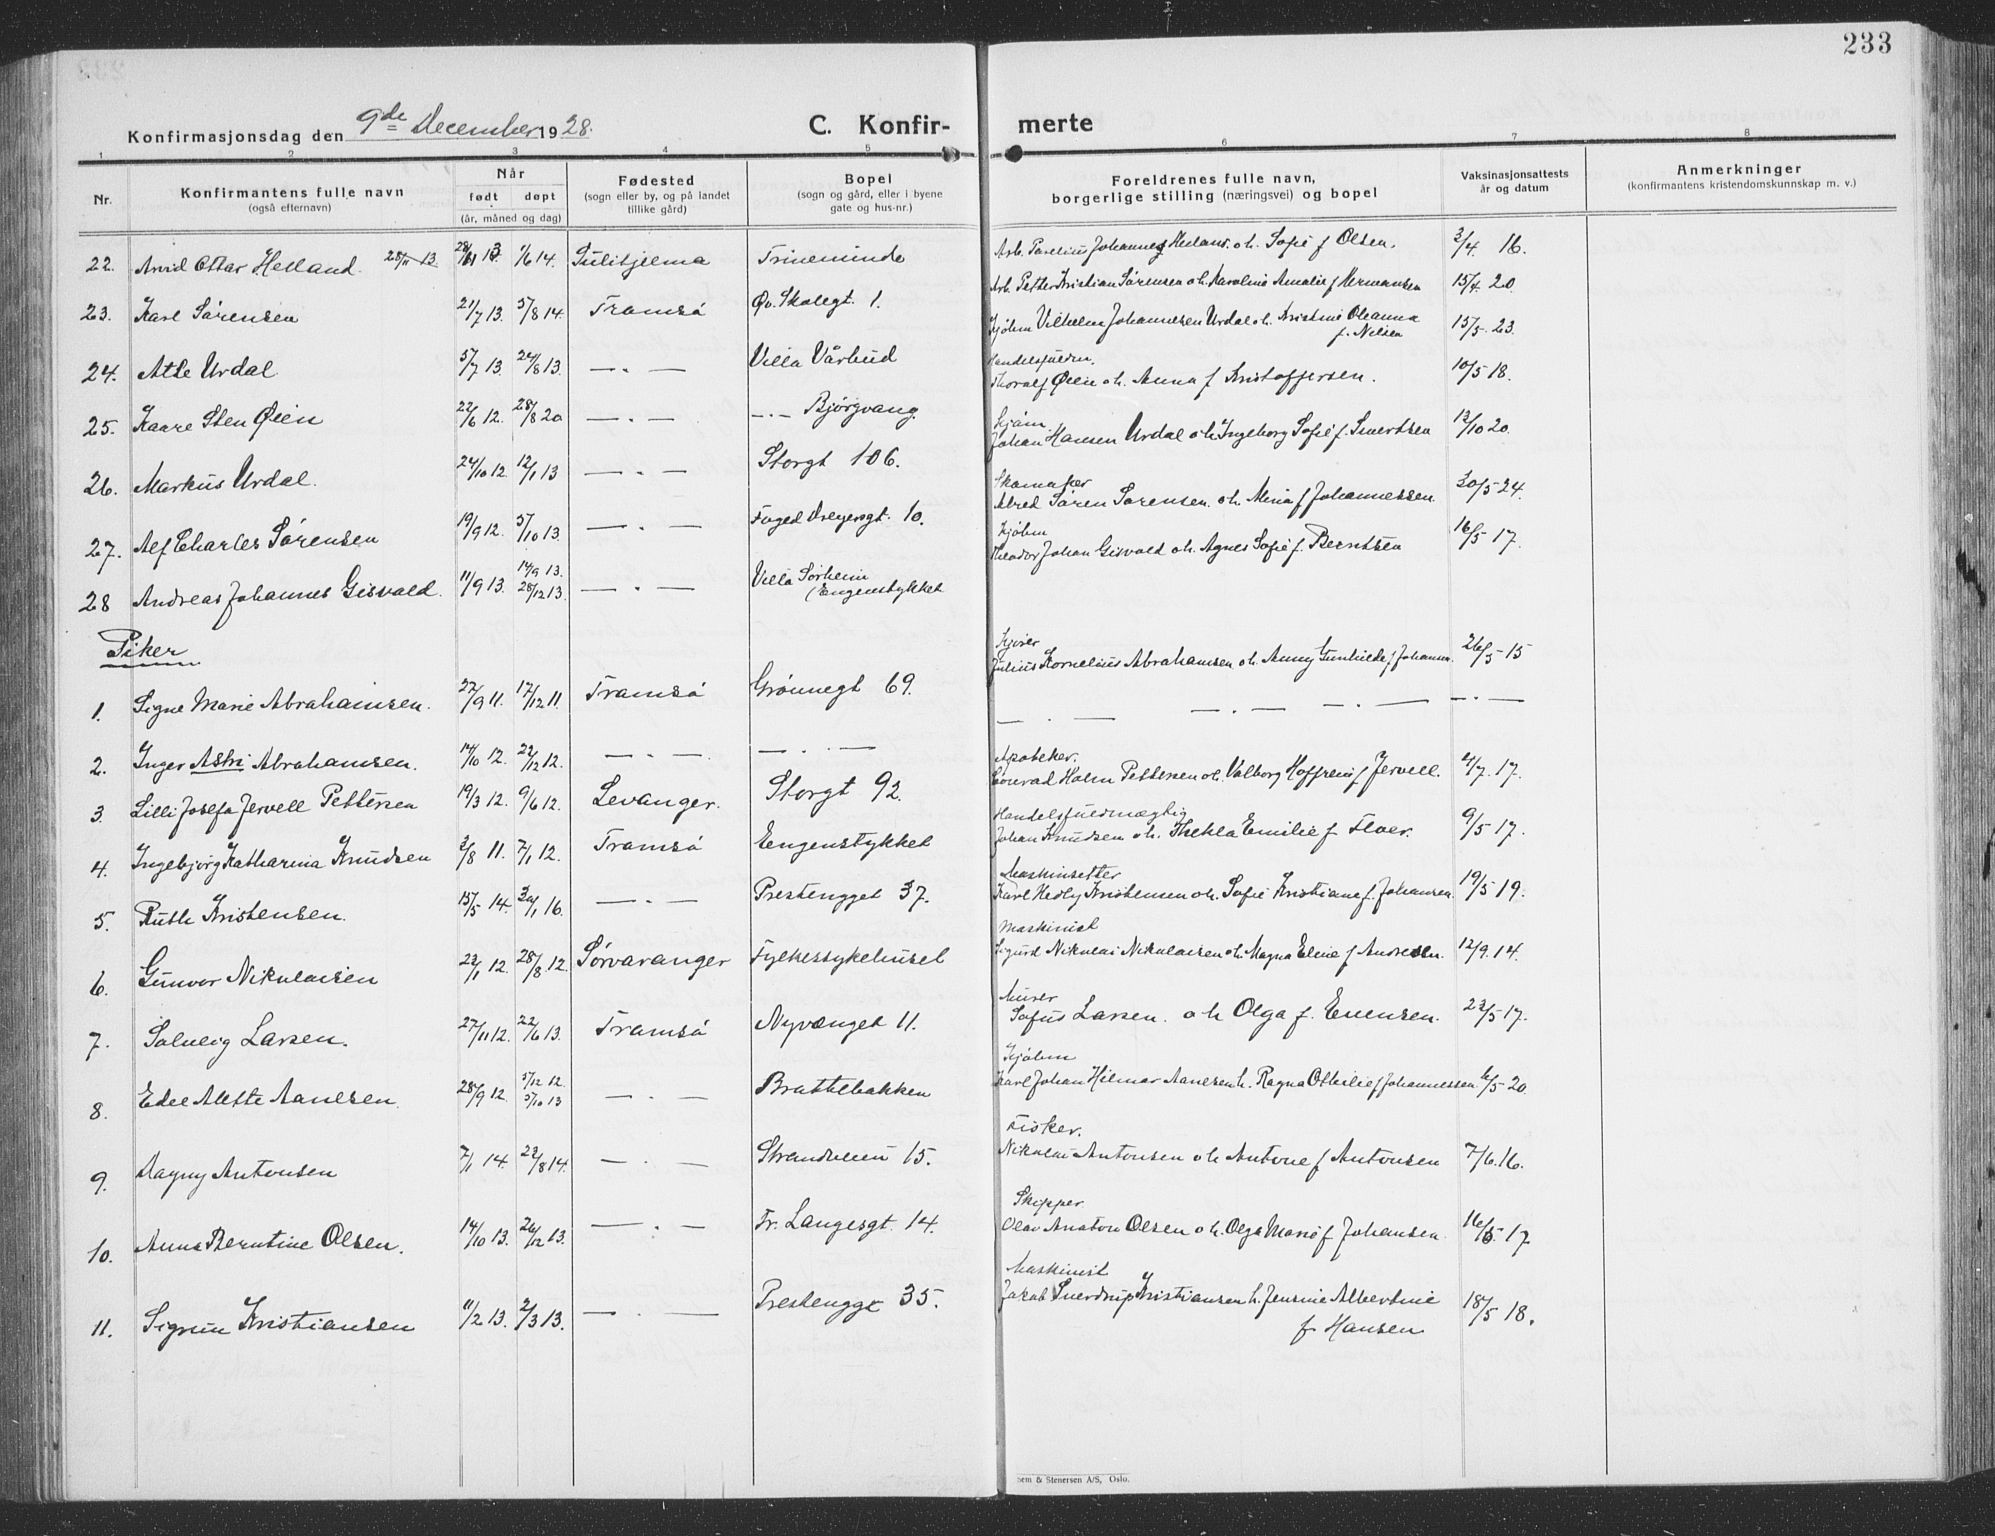 233
Konfirmasjonsdag den 9de December 1928.
C. Konfir- merte
1 2 3 4 5 6 7 8
Nr. Konfirmantens fulle navn (også efternavn)
Når født døpt (år, måned og dag)
Fødested (sogn eller by, og på landet tillike gård)
Bopel (sogn og gård, eller i byene gate og hus-nr.)
Foreldrenes fulle navn, borgerlige stilling (næringsvei) og bopel
Vaksinasjonsattests år og datum
Anmerkninger (konfirmantens kristendomskunnskap m. v.)
22. Arvid Ottar Helland 28/11 13 1/6 14. Sulitjelma Trineminde Arb. Parelius Johannes o.h. Sofie f Olsen. 3/4. 16.
23. Karl Sørensen 21/7 13. 5/8 14. Tromsø Øv. Skolegt. 1. Arb. Petter Kristian Sørensen o.h. Karoline Amalie f Hermansen 15/4. 20
24. Atle Urdal 5/7 13. 24/8 13. — " — Villa Vårbud Kjøbm Vilhelm Johannesen Urdal o.h. Kristine Oleanna f. Nilsen 15/5. 23.
25. Kaare Sten Øien 22/6 12. 28/8 20 — " — — " — Bjørgvang. Thoralf Øien o.h. Anna f Kristoffersen. 10/5 18.
26. Markus Urdal. 24/10 12. 12/1 13 — " — Storgt 106. Johan Hansen Urdal o.h. Ingeborg Sofie f. Sivertsen 13/10 20.
27. Alf Charles Sørensen 19/9 12. 5/10 13. — " — Foged Dreyersgt. 10. Skomaker Søren Sørensen o.h. Mina f Johannessen. 30/5 24.
28 Andreas Johannes Gisvold. 11/9 13. 14/9 13. 28/12 13. — " — Villa Sørheim Engenstykket Kjøbm Theodor Johan Gisvold o.h. Agnes Sofie f. Berntsen 16/5 17.
Piker
1. Signe Marie Abrahamsen. 27/9 11. 17/12 11. Tromsø Grønnegt 69. Julius Kornelius Abrahamsen o.h. Anny Gunhilde f Johansen. 26/5 15
2. Inger Astri Abrahamsen. 14/10 12. 22/12 12. — " — — " — — " — — " — — " — — " —
3. Lilli Josefa Jervell Pettersen 19/3 12. 9/6 12. Levanger. Storgt 92. Apoteker. Conrad Holm Pettersen o.h. Valborg Hoffreni f. Jervell. 4/7. 17.
4. Ingebjørg Katharina Knudsen 3/8 11. 7/1 12. Tromsø Engenstykket Handelsfuldmægtig Johan Knudsen o.h. Thekla Emilie f Floer. 9/5 17.
5. Ruth Kristensen. 15/5 14. 30/1 16. — " — Prestenggt 37. Maskinsetter Karl Hedly Kristensen o.h. Sofie Kristiane f. Johansen. 19/5 19.
6. Gunvor Nikolaisen 22/1 12. 28/8 12. Sørvaranger Fylkessykehuset Maskinist Sigurd Nikolai Nikolaisen o.h. Magna Eline f Andresen. 12/9. 14.
7. Solveig Larsen. 27/11 12. 22/6 13. Tromsø Nyvænget 11. Murer Sofus Larsen. o.h Olga f. Evensen. 23/5 17.
8. Edle Alette Aanesen. 28/9 12. 5/12 12. 5/10 13 — " — Brattebakken Kjøbm Karl Johan Hilmar Aanesen h. Ragna Ottilie f Johannessen 6/5 20.
9. Dagny Antonsen 7/1 14. 23/8 14. — " — Strandveien 15. Fisker. Nikolai Antonsen o h. Antone f Antonsen 7/6. 16.
10. Anna Berntine Olsen. 14/10 13. 26/12 13. — " — Fr. Langesgt. 14. Skipper Olav Anaton Olsen o h. Olga Marie f Johansen. 16/5. 17
11. Sigrun Kristiansen 11/2 13. 2/3 13. — " — Prestenggt 35. Maskinist Jakob Sverdrup Kristiansen h. Jensine Albertine f. Hansen 18/5 18.
Sem & Stenersen A/S, Oslo.